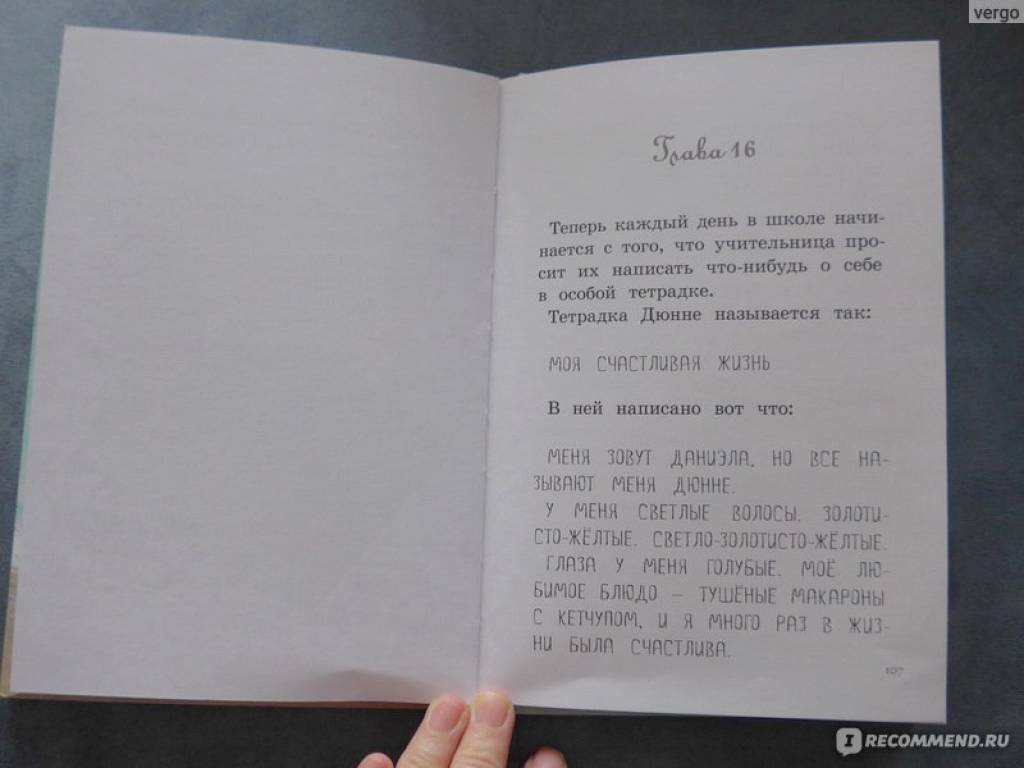 vergo
Глава 16
Теперь каждый день в школе начи-
нается с того, что учительница про-
сит их написать что-нибудь о себе
в особой тетрадке.
Тетрадка Дюнне называется так:
МОЯ СЧАСТЛИВАЯ ЖИЗНЬ
В ней написано вот что:
МЕНЯ ЗОВУТ ДАНИЭЛА, НО ВСЕ НА-
ЗЫВАЮТ МЕНЯ ДЮННЕ.
У МЕНЯ СВЕТЛЫЕ ВОЛОСЫ. ЗОЛОТИ-
СТО-ЖЁЛТЫЕ. СВЕТЛО-ЗОЛОТИСТО-ЖЁЛТЫЕ.
ГЛАЗА У МЕНЯ ГОЛУБЫЕ. МОЁ ЛЮ-
БИМОЕ БЛЮДО — ТУШЁНЫЕ МАКАРОНЫ
С КЕТЧУПОМ, И Я МНОГО РАЗ В ЖИЗ-
НИ БЫЛА СЧАСТЛИВА.
107
IRECOMMEND.RU